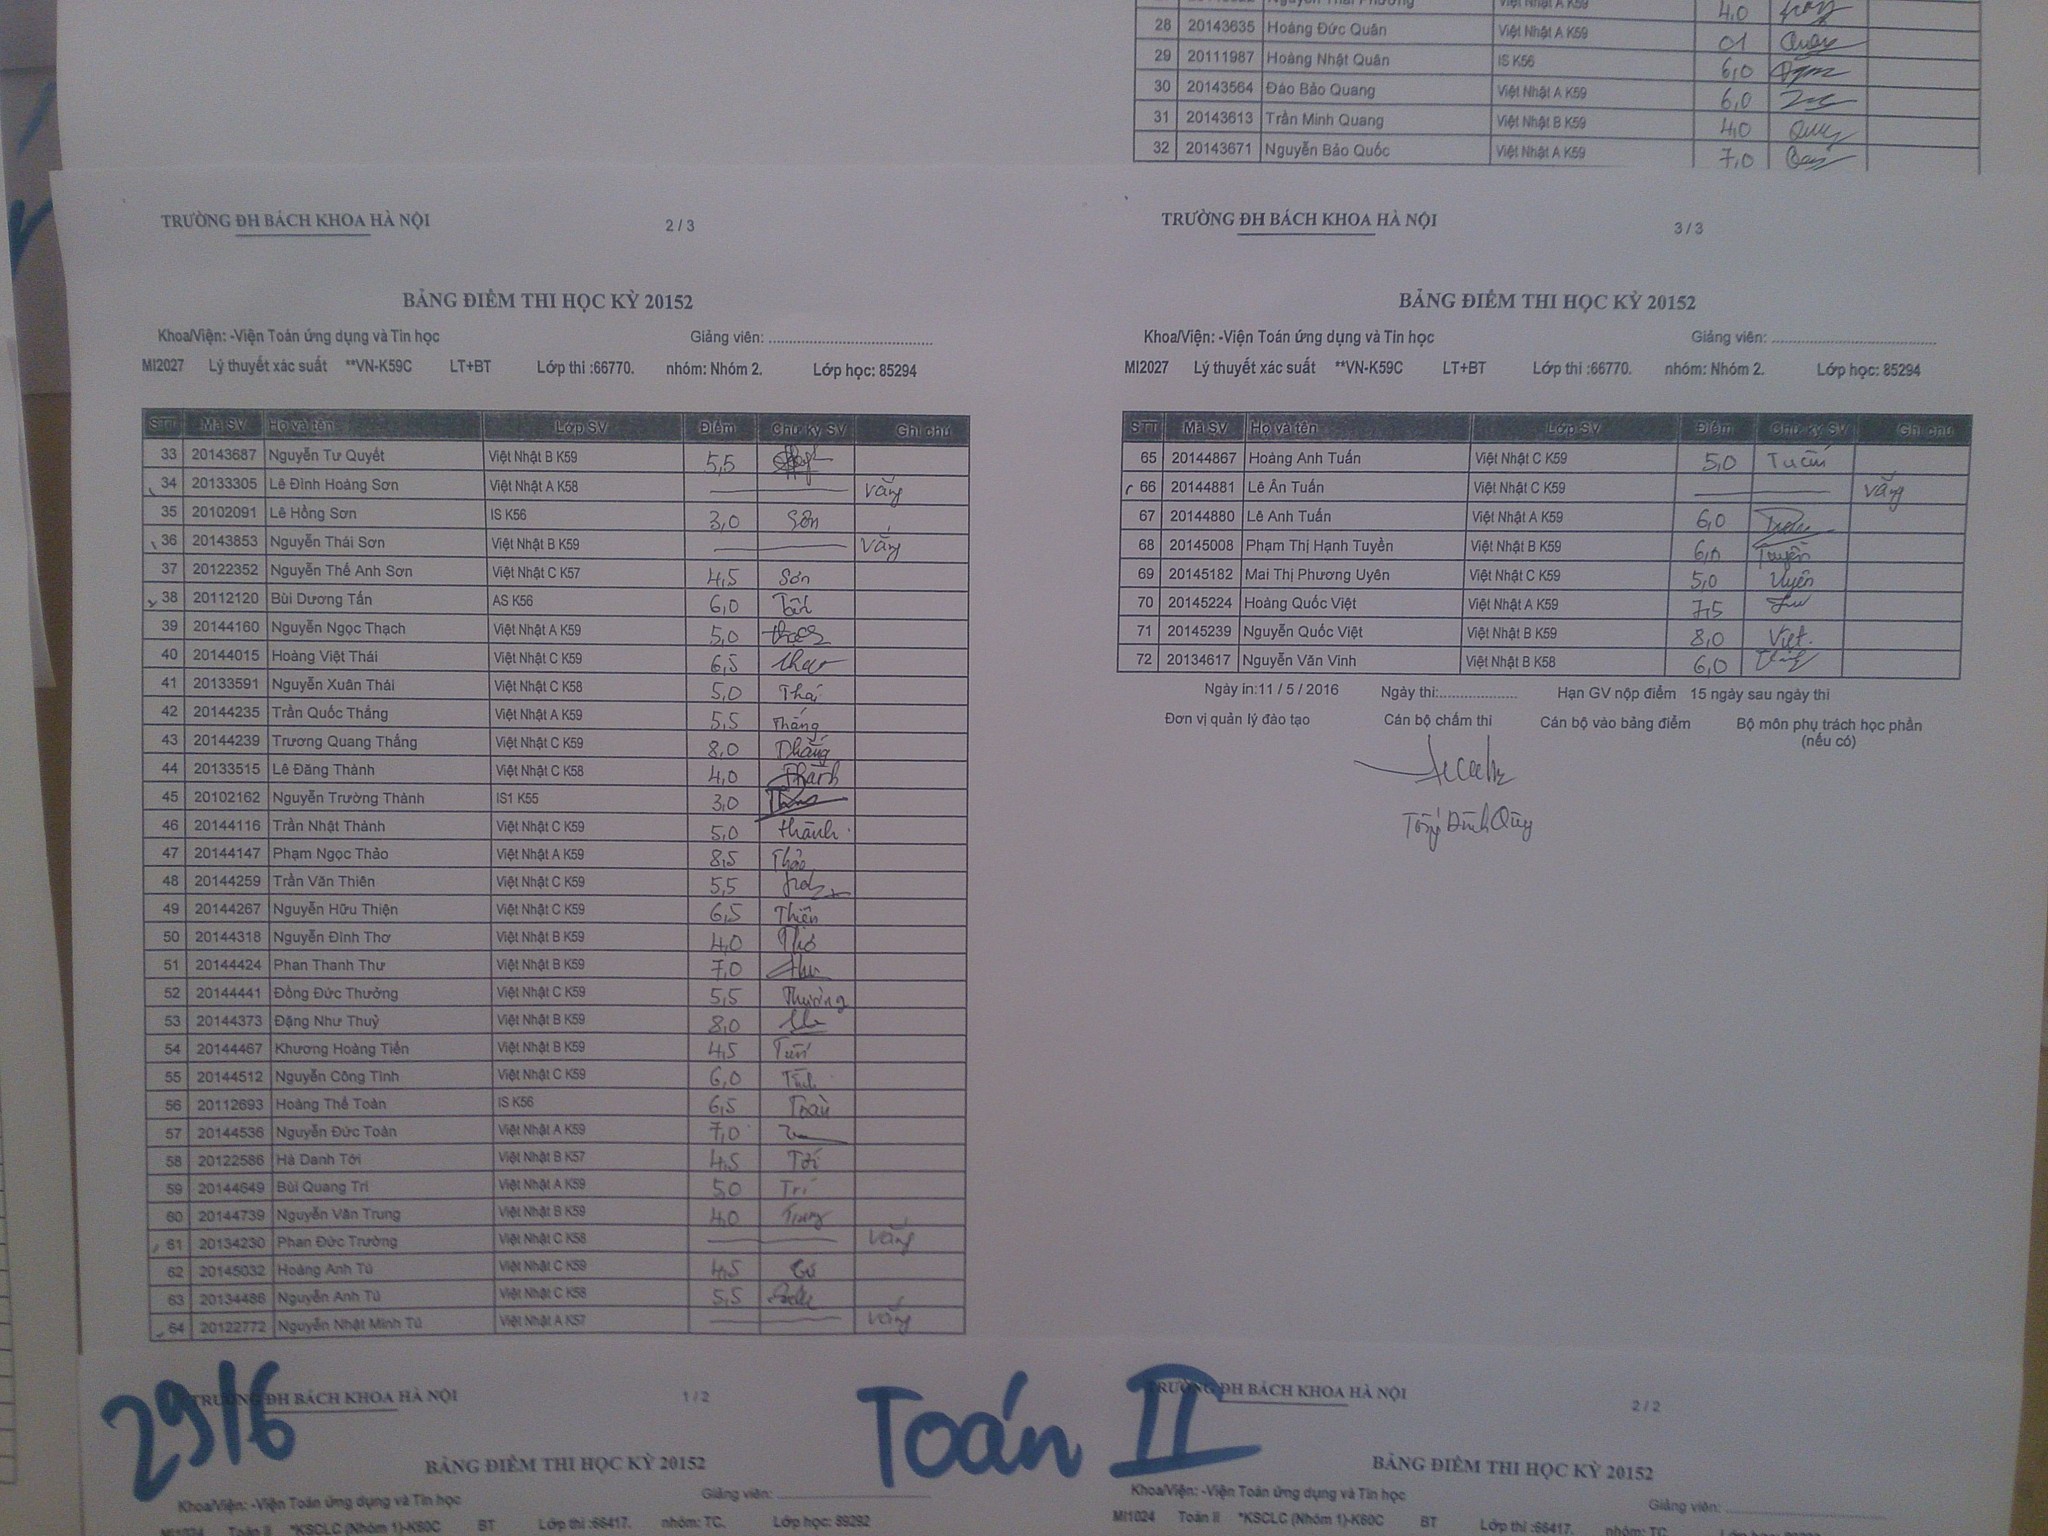 28 20143635 Hoàng Đức Quân Việt Nhật A K59 01
29 20111987 Hoàng Nhật Quân IS K56 6,0
30 20143564 Đào Bảo Quang Việt Nhật A K59 6,0
31 20143613 Trần Minh Quang Việt Nhật B K59 4,0
32 20143671 Nguyễn Bảo Quốc Việt Nhật A K59 7,0
TRƯỜNG ĐH BÁCH KHOA HÀ NỘI 2 / 3
BẢNG ĐIỂM THI HỌC KỲ 20152
Khoa/Viện: -Viện Toán ứng dụng và Tin học Giảng viên: ......................................
MI2027 Lý thuyết xác suất **VN-K59C LT+BT Lớp thi :66770. nhóm: Nhóm 2. Lớp học: 85294
STT Mã SV Họ và tên Lớp SV Điểm Chữ ký SV Ghi chú
33 20143687 Nguyễn Tư Quyết Việt Nhật B K59 5,5
34 20133305 Lê Đình Hoàng Sơn Việt Nhật A K58 vắng
35 20102091 Lê Hồng Sơn IS K56 3,0 Sơn
36 20143853 Nguyễn Thái Sơn Việt Nhật B K59 vắng
37 20122352 Nguyễn Thế Anh Sơn Việt Nhật C K57 4,5 Sơn
38 20112120 Bùi Dương Tấn AS K56 6,0 Tấn
39 20144160 Nguyễn Ngọc Thạch Việt Nhật A K59 5,0
40 20144015 Hoàng Việt Thái Việt Nhật C K59 6,5
41 20133591 Nguyễn Xuân Thái Việt Nhật C K58 5,0 Thái
42 20144235 Trần Quốc Thắng Việt Nhật A K59 5,5 Thắng
43 20144239 Trương Quang Thắng Việt Nhật C K59 8,0 Thắng
44 20133515 Lê Đăng Thành Việt Nhật C K58 4,0 Thành
45 20102162 Nguyễn Trường Thành IS1 K55 3,0
46 20144116 Trần Nhật Thành Việt Nhật C K59 5,0 thành
47 20144147 Phạm Ngọc Thảo Việt Nhật A K59 8,5 Thảo
48 20144259 Trần Văn Thiên Việt Nhật C K59 5,5
49 20144267 Nguyễn Hữu Thiện Việt Nhật C K59 6,5 Thiện
50 20144318 Nguyễn Đình Thơ Việt Nhật B K59 4,0 Thơ
51 20144424 Phan Thanh Thư Việt Nhật B K59 7,0 thư
52 20144441 Đồng Đức Thưởng Việt Nhật C K59 5,5 Thưởng
53 20144373 Đặng Như Thuỷ Việt Nhật B K59 8,0
54 20144467 Khương Hoàng Tiến Việt Nhật B K59 4,5 Tiến
55 20144512 Nguyễn Công Tình Việt Nhật C K59 6,0 Tình
56 20112693 Hoàng Thế Toàn IS K56 6,5 Toàn
57 20144536 Nguyễn Đức Toàn Việt Nhật A K59 7,0
58 20122586 Hà Danh Tới Việt Nhật B K57 4,5 Tới
59 20144649 Bùi Quang Trí Việt Nhật A K59 5,0 Trí
60 20144739 Nguyễn Văn Trung Việt Nhật B K59 4,0 Trung
61 20134230 Phan Đức Trường Việt Nhật C K58 vắng
62 20145032 Hoàng Anh Tú Việt Nhật C K59 4,5 Tú
63 20134486 Nguyễn Anh Tú Việt Nhật C K58 5,5
64 20122772 Nguyễn Nhật Minh Tú Việt Nhật A K57 vắng
TRƯỜNG ĐH BÁCH KHOA HÀ NỘI 3 / 3
BẢNG ĐIỂM THI HỌC KỲ 20152
Khoa/Viện: -Viện Toán ứng dụng và Tin học Giảng viên: ......................................
MI2027 Lý thuyết xác suất **VN-K59C LT+BT Lớp thi :66770. nhóm: Nhóm 2. Lớp học: 85294
STT Mã SV Họ và tên Lớp SV Điểm Chữ ký SV Ghi chú
65 20144867 Hoàng Anh Tuấn Việt Nhật C K59 5,0 Tuấn
66 20144881 Lê Ân Tuấn Việt Nhật C K59 vắng
67 20144880 Lê Anh Tuấn Việt Nhật A K59 6,0
68 20145008 Phạm Thị Hạnh Tuyền Việt Nhật B K59 6,0 Tuyền
69 20145182 Mai Thị Phương Uyên Việt Nhật C K59 5,0 Uyên
70 20145224 Hoàng Quốc Việt Việt Nhật A K59 7,5
71 20145239 Nguyễn Quốc Việt Việt Nhật B K59 8,0 Việt.
72 20134617 Nguyễn Văn Vinh Việt Nhật B K58 6,0
Ngày in:11 / 5 / 2016 Ngày thi:.................. Hạn GV nộp điểm 15 ngày sau ngày thi
Đơn vị quản lý đào tạo Cán bộ chấm thi Cán bộ vào bảng điểm Bộ môn phụ trách học phần
(nếu có)
Tống Đình Quỳ
29/6 Toán II
TRƯỜNG ĐH BÁCH KHOA HÀ NỘI 1 / 2
BẢNG ĐIỂM THI HỌC KỲ 20152
Khoa/Viện: -Viện Toán ứng dụng và Tin học Giảng viên: ......................................
MI1024 Toán II *KSCLC (Nhóm 1)-K60C BT Lớp thi :66417. nhóm: TC. Lớp học: 89292
TRƯỜNG ĐH BÁCH KHOA HÀ NỘI 2 / 2
BẢNG ĐIỂM THI HỌC KỲ 20152
Khoa/Viện: -Viện Toán ứng dụng và Tin học Giảng viên: ......................................
MI1024 Toán II *KSCLC (Nhóm 1)-K60C BT Lớp thi :66417. nhóm: TC.